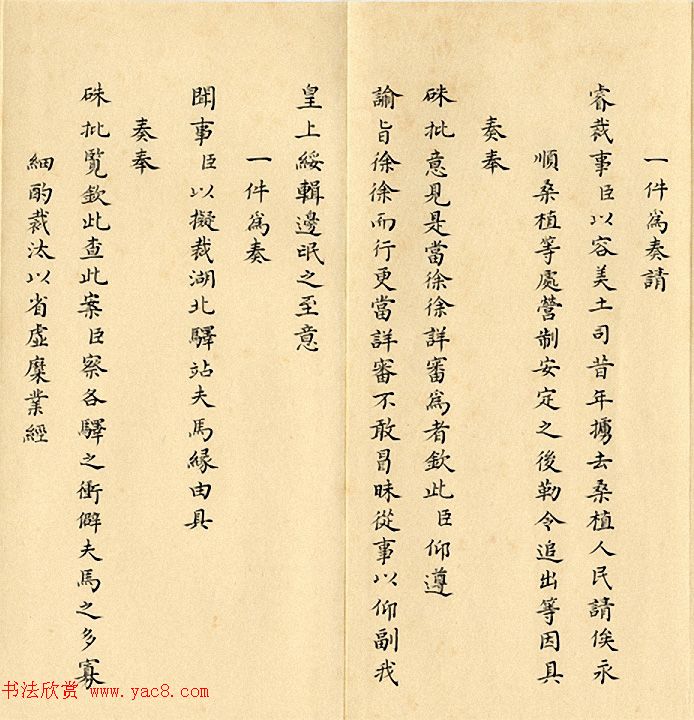 一件爲奏請
睿裁事臣以容美土司昔年擄去桑植人民請俟永
順桑植等處營制安定之後勒令追出等因具
奏奉
硃批意見是當徐徐詳審爲者欽此臣仰遵
諭旨徐徐而行更當詳審不敢冒昧從事以仰副我
皇上綏輯邊氓之至意
一件爲奏
聞事臣以擬裁湖北驛站夫馬緣由具
奏奉
硃批覽欽此查此案臣察各驛之衝僻夫馬之多寡
細酌裁汰以省虛糜業經
书法欣赏 www.yac8.com